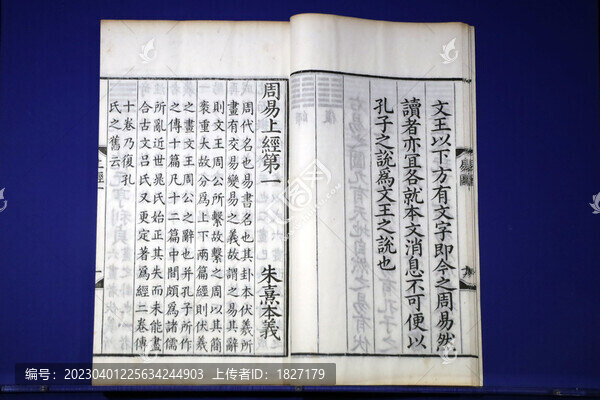 文王以下方有文字即今之周易然
讀者亦宜各就本文消息不可便以
孔子之說為文王之說也
周易上經第一 朱熹本義
周代名也易書名也其卦本伏羲所
畫有交易變易之義故謂之易其辭
則文王周公所繫故繫之周以其簡
袠重大故分爲上下兩篇經則伏羲
之畫文王周公之辭也并孔子所作
之傳十篇凡十二篇中間頗爲諸儒
所亂近世晁氏始正其失而未能盡
合古文呂氏又更定著爲經二卷傳
十卷乃復孔
氏之舊云
编号：20230401225634244903 上传者ID：1827179